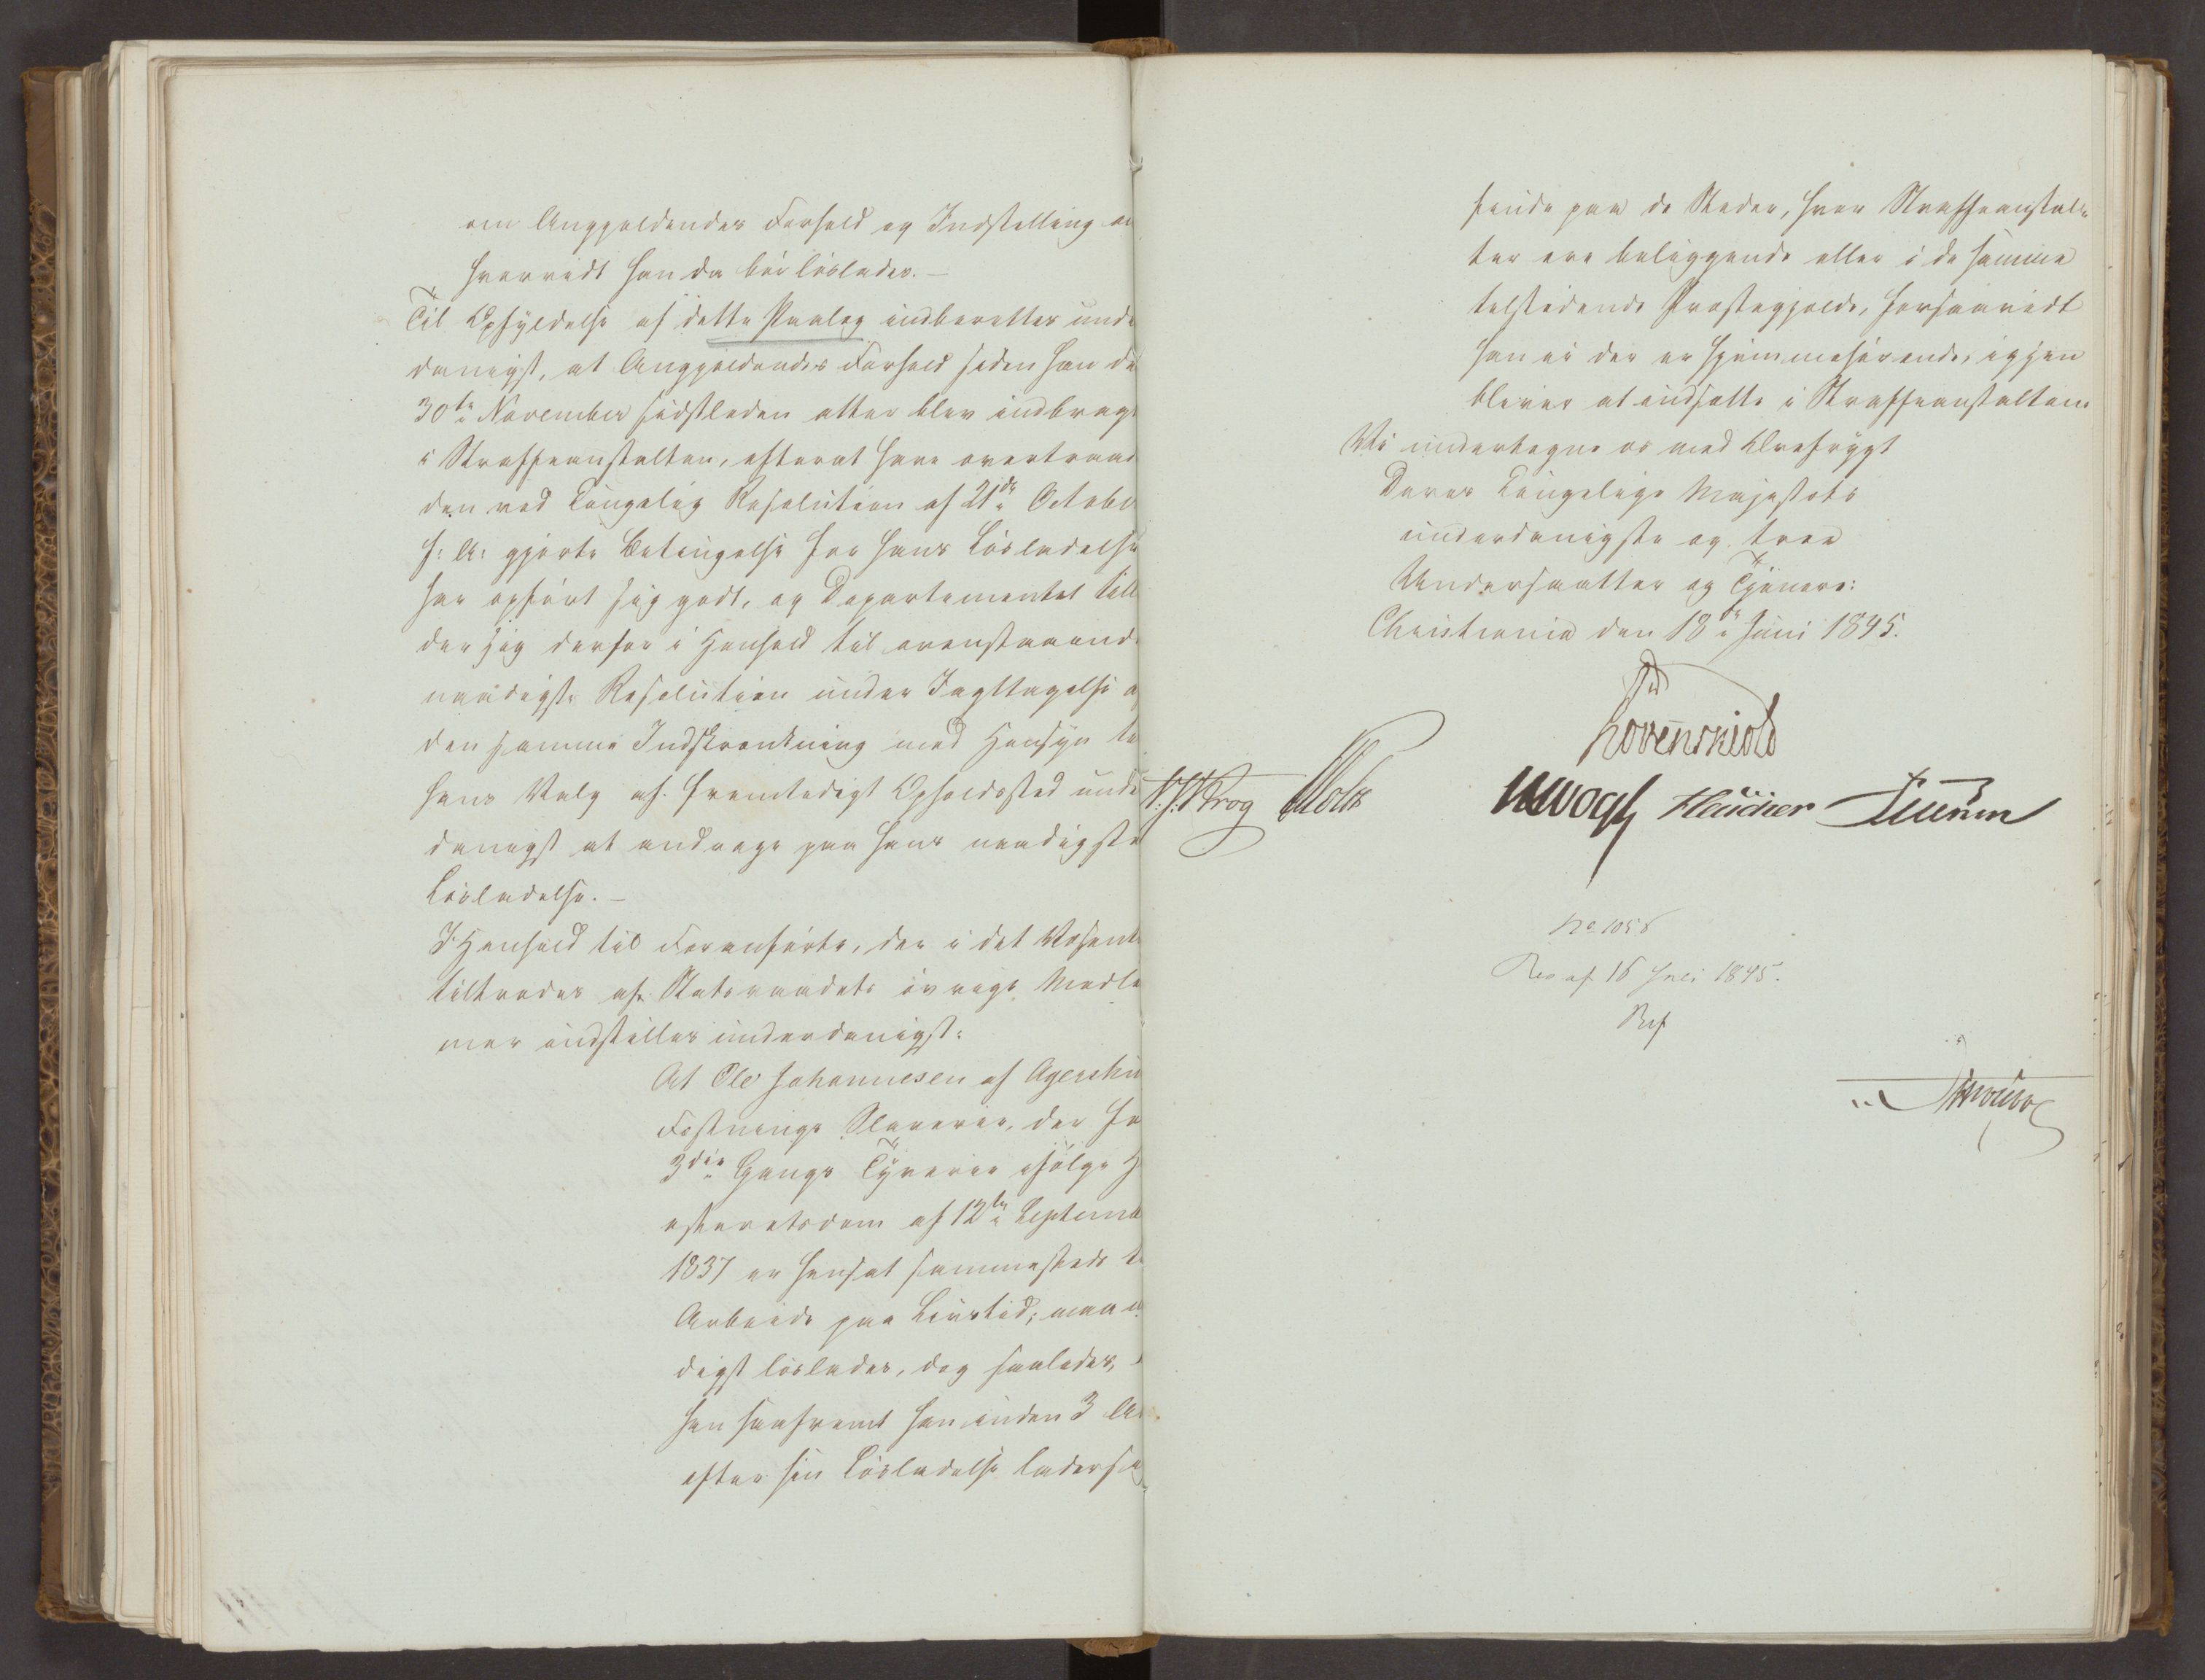 om Anggjeldendes Forhold og Indstilling om
hvorvidt han da bör löslades.—
Til Opfyldelse af dette Paalæg indberettes unde
danigst, at Anggjeldendes Forhold siden han de
30te November sidstleden atter blev indbragt
i Straffeanstalten, efterat have overtraad
den ved Kongelig Resolution af 21de Octobe
f: A: gjorte Betingelse for hans Lösladelse
har opfört sig godt, og Departementet till
der sig derfor i Henhold til ovenstaaende
naadigste Resolution under Iagttagelse a
den samme Indskrænkning med Hensyn ti
hans Valg af fremtidigt Opholdssted unde
danigst at andrage paa hans naadigste
Lösladelse.—
I Henhold til Foranförte, der i det Væsent
tiltrædes af Statsraadets övrige Medle
mer indstilles underdanigst:
At Ole Johannesen af Agershu
Fæstnings Slaverie, der fo
3die Gangs Tyverie ifölge H
esteretsdom af 12te Septemb
1837 er hensat sammesteds t
Arbeide paa Livstid, maa n
digst löslades, dog saaledes,
han saafremt han inden 3 A
efter sin Lösladelse lader sig
finde paa de Steder, hvor Straffeanstal-
ter ere beliggende eller i de samme
tilstödende Præstegjelde, forsaavidt
han ei der er hjemmehörende, igjen
bliver at indsætte i Straffeanstalten.
Vi undertegne os med Ærefrygt
Deres Kongelige Majestæts
underdanigste og troe
Undersaatter og Tjenere:
Christiania den 18de Juni 1845.
Lövenskiold
Krog Holst Vogt
No 1058
Res af 16 Juli 1845.